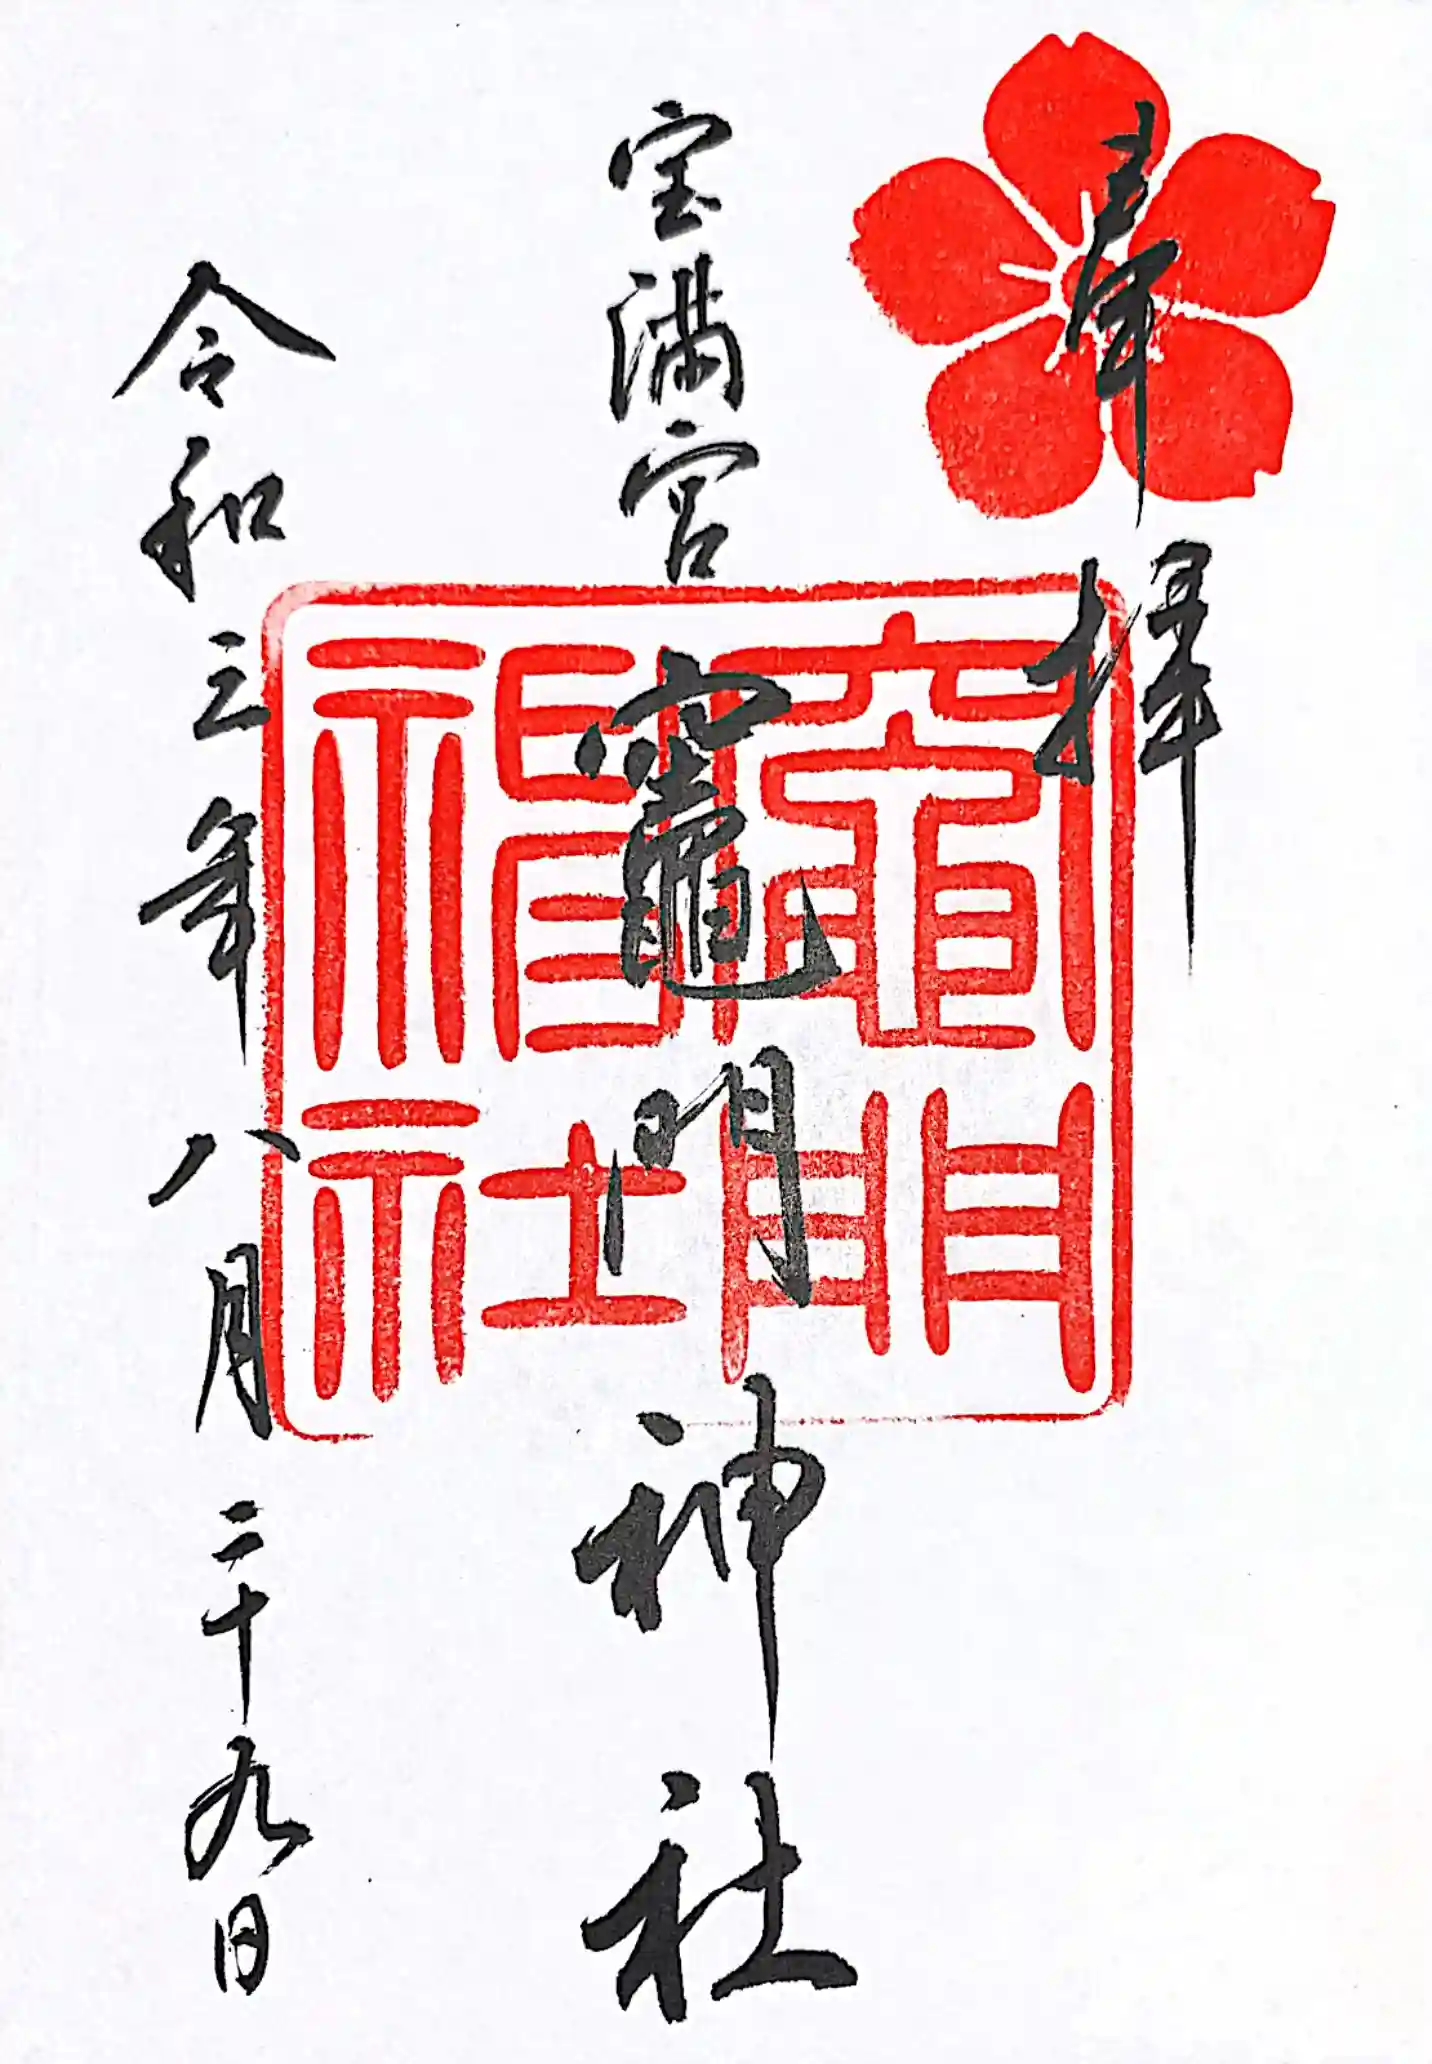 奉拝
宝満宮
竈門神社
竈門神社
令和三年八月二十九日